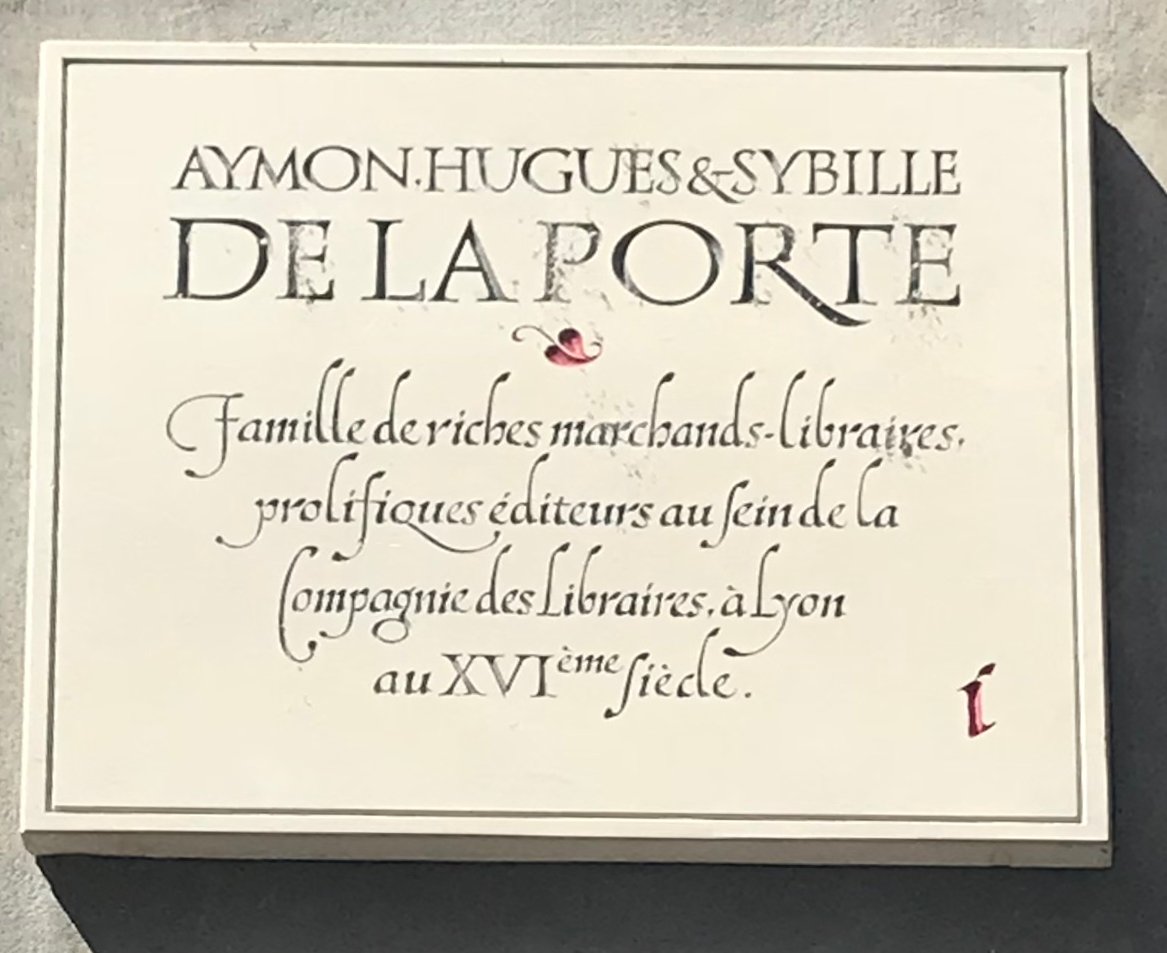 AYMON.HUGUES & SYBILLE
DE LA PORTE
Famille de riches marchands-libraires,
prolifiques éditeurs au sein de la
Compagnie des Libraires, à Lyon
au XVIème siècle.
i